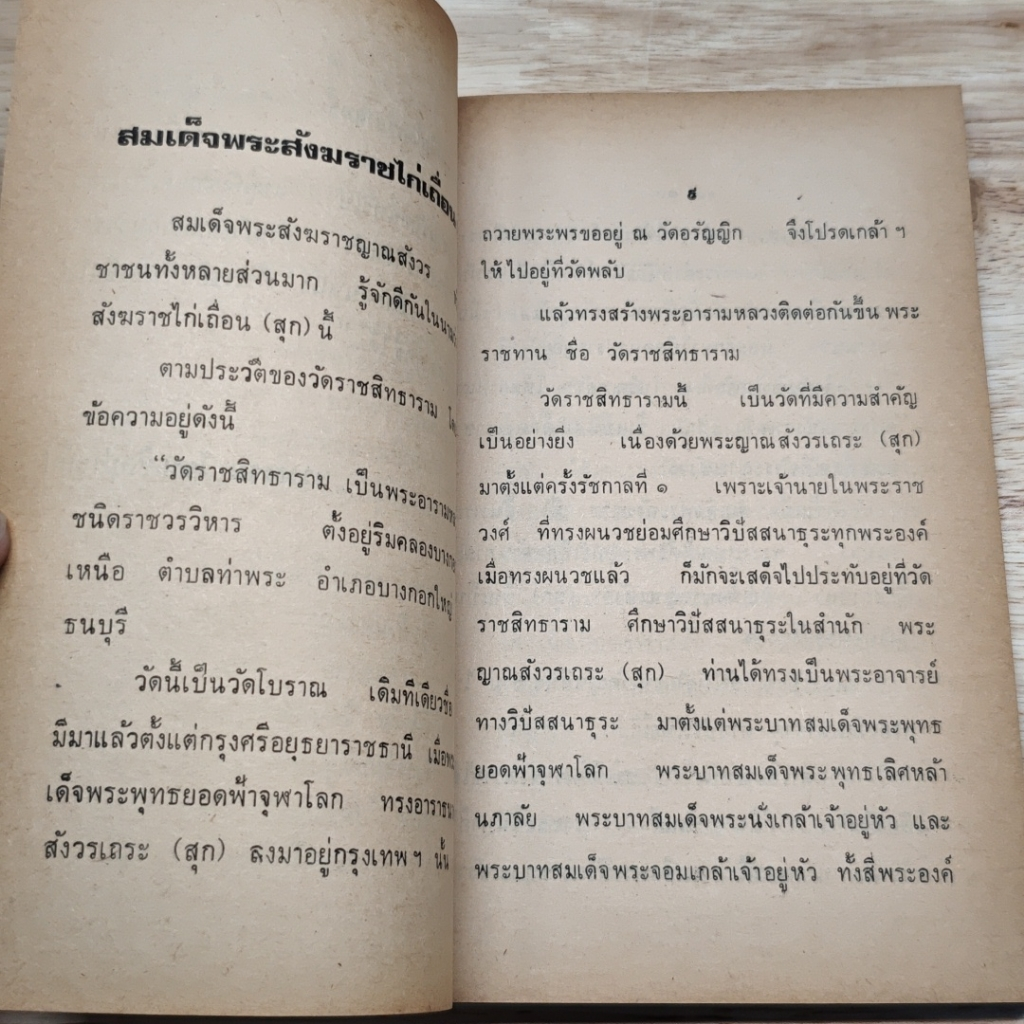 สมเด็จพระสังฆราชไก่เถื่อน
สมเด็จพระสังฆราชญาณสังวร
ชาชนทั้งหลายส่วนมาก รู้จักดีกันในนาม
สังฆราชไก่เถื่อน (สุก) นี้
ตามประวัติของวัดราชสิทธาราม
ข้อความอยู่ดังนี้
“วัดราชสิทธาราม เป็นพระอาราม
ชนิดราชวรวิหาร ตั้งอยู่ริมคลองบาง
เหนือ ตำบลท่าพระ อำเภอบางกอกใหญ่
ธนบุรี
วัดนี้เป็นวัดโบราณ เดิมทีเดียว
มีมาแล้วตั้งแต่กรุงศรีอยุธยาราชธานี เมื่อ
เด็จพระพุทธยอดฟ้าจุฬาโลก ทรงอาราธนา
สังวรเถระ (สุก) ลงมาอยู่กรุงเทพฯ นั้น
๙
ถวายพระพรขออยู่ ณ วัดอรัญญิก จึงโปรดเกล้า ฯ
ให้ไปอยู่ที่วัดพลับ
แล้วทรงสร้างพระอารามหลวงติดต่อกันขึ้น พระ
ราชทาน ชื่อ วัดราชสิทธาราม
วัดราชสิทธารามนี้ เป็นวัดที่มีความสำคัญ
เป็นอย่างยิ่ง เนื่องด้วยพระญาณสังวรเถระ (สุก)
มาตั้งแต่ครั้งรัชกาลที่ ๑ เพราะเจ้านายในพระราช
วงศ์ ที่ทรงผนวชย่อมศึกษาวิปัสสนาธุระทุกพระองค์
เมื่อทรงผนวชแล้ว ก็มักจะเสด็จไปประทับอยู่ที่วัด
ราชสิทธาราม ศึกษาวิปัสสนาธุระในสำนัก พระ
ญาณสังวรเถระ (สุก) ท่านได้ทรงเป็นพระอาจารย์
ทางวิปัสสนาธุระ มาตั้งแต่พระบาทสมเด็จพระพุทธ
ยอดฟ้าจุฬาโลก พระบาทสมเด็จพระพุทธเลิศหล้า
นภาลัย พระบาทสมเด็จพระนั่งเกล้าเจ้าอยู่หัว และ
พระบาทสมเด็จพระจอมเกล้าเจ้าอยู่หัว ทั้งสี่พระองค์